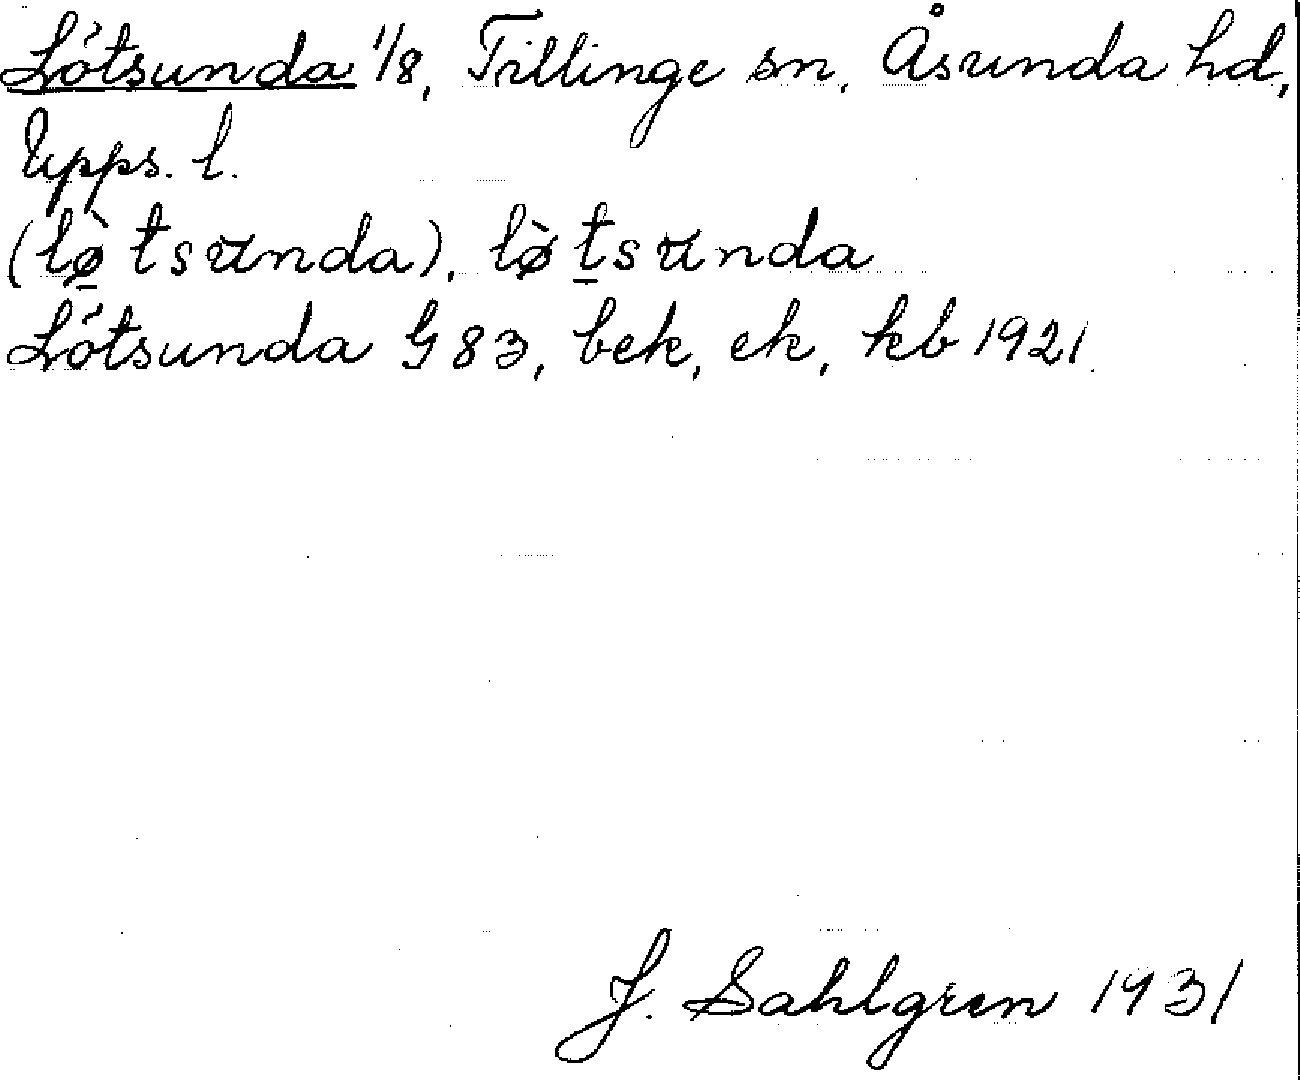 Lötsunda 1/8, Tillinge sn. Åsunda hd,
Upps. l.
(lø̠̀tsunda). lø̀t̠sunda
Lötsunda G 83, bek, ek, kb 1921.
J. Sahlgren 1931